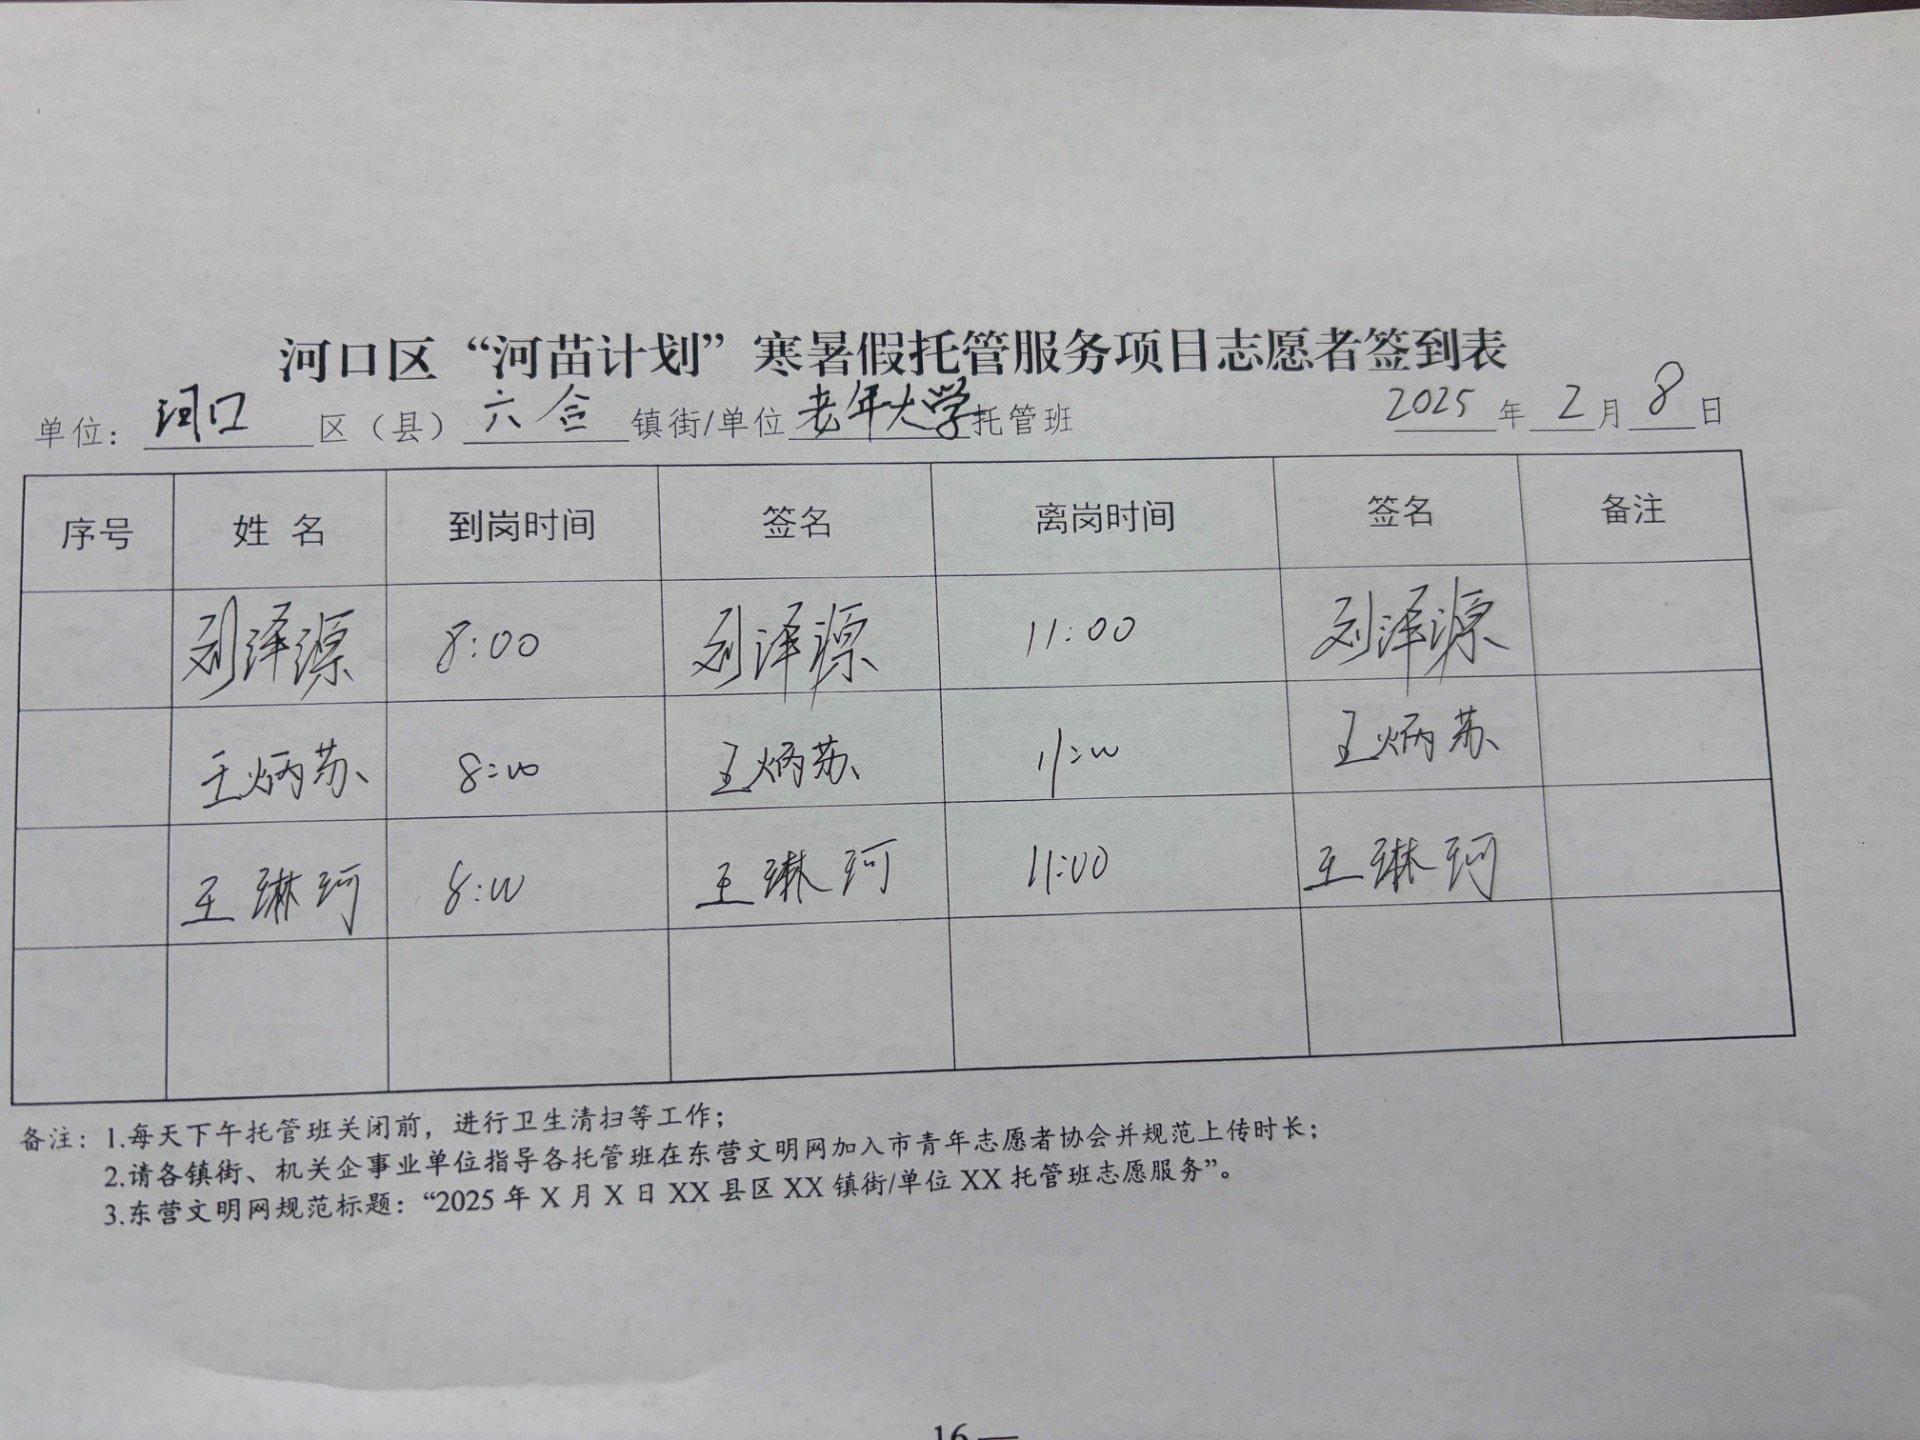 河口区“河苗计划”寒暑假托管服务项目志愿者签到表
单位：河口区（县）六合镇街/单位老年大学托管班 2025年2月8日
序号 姓名 到岗时间 签名 离岗时间 签名 备注
刘泽源 8:00 刘泽源 11:00 刘泽源
王炳苏 8:00 王炳苏 11:00 王炳苏
王琳珂 8:00 王琳珂 11:00 王琳珂
备注：1.每天下午托管班关闭前，进行卫生清扫等工作；
2.请各镇街、机关企事业单位指导各托管班在东营文明网加入市青年志愿者协会并规范上传时长；
3.东营文明网规范标题：“2025年X月X日XX县区XX镇街/单位XX托管班志愿服务”。
16 —